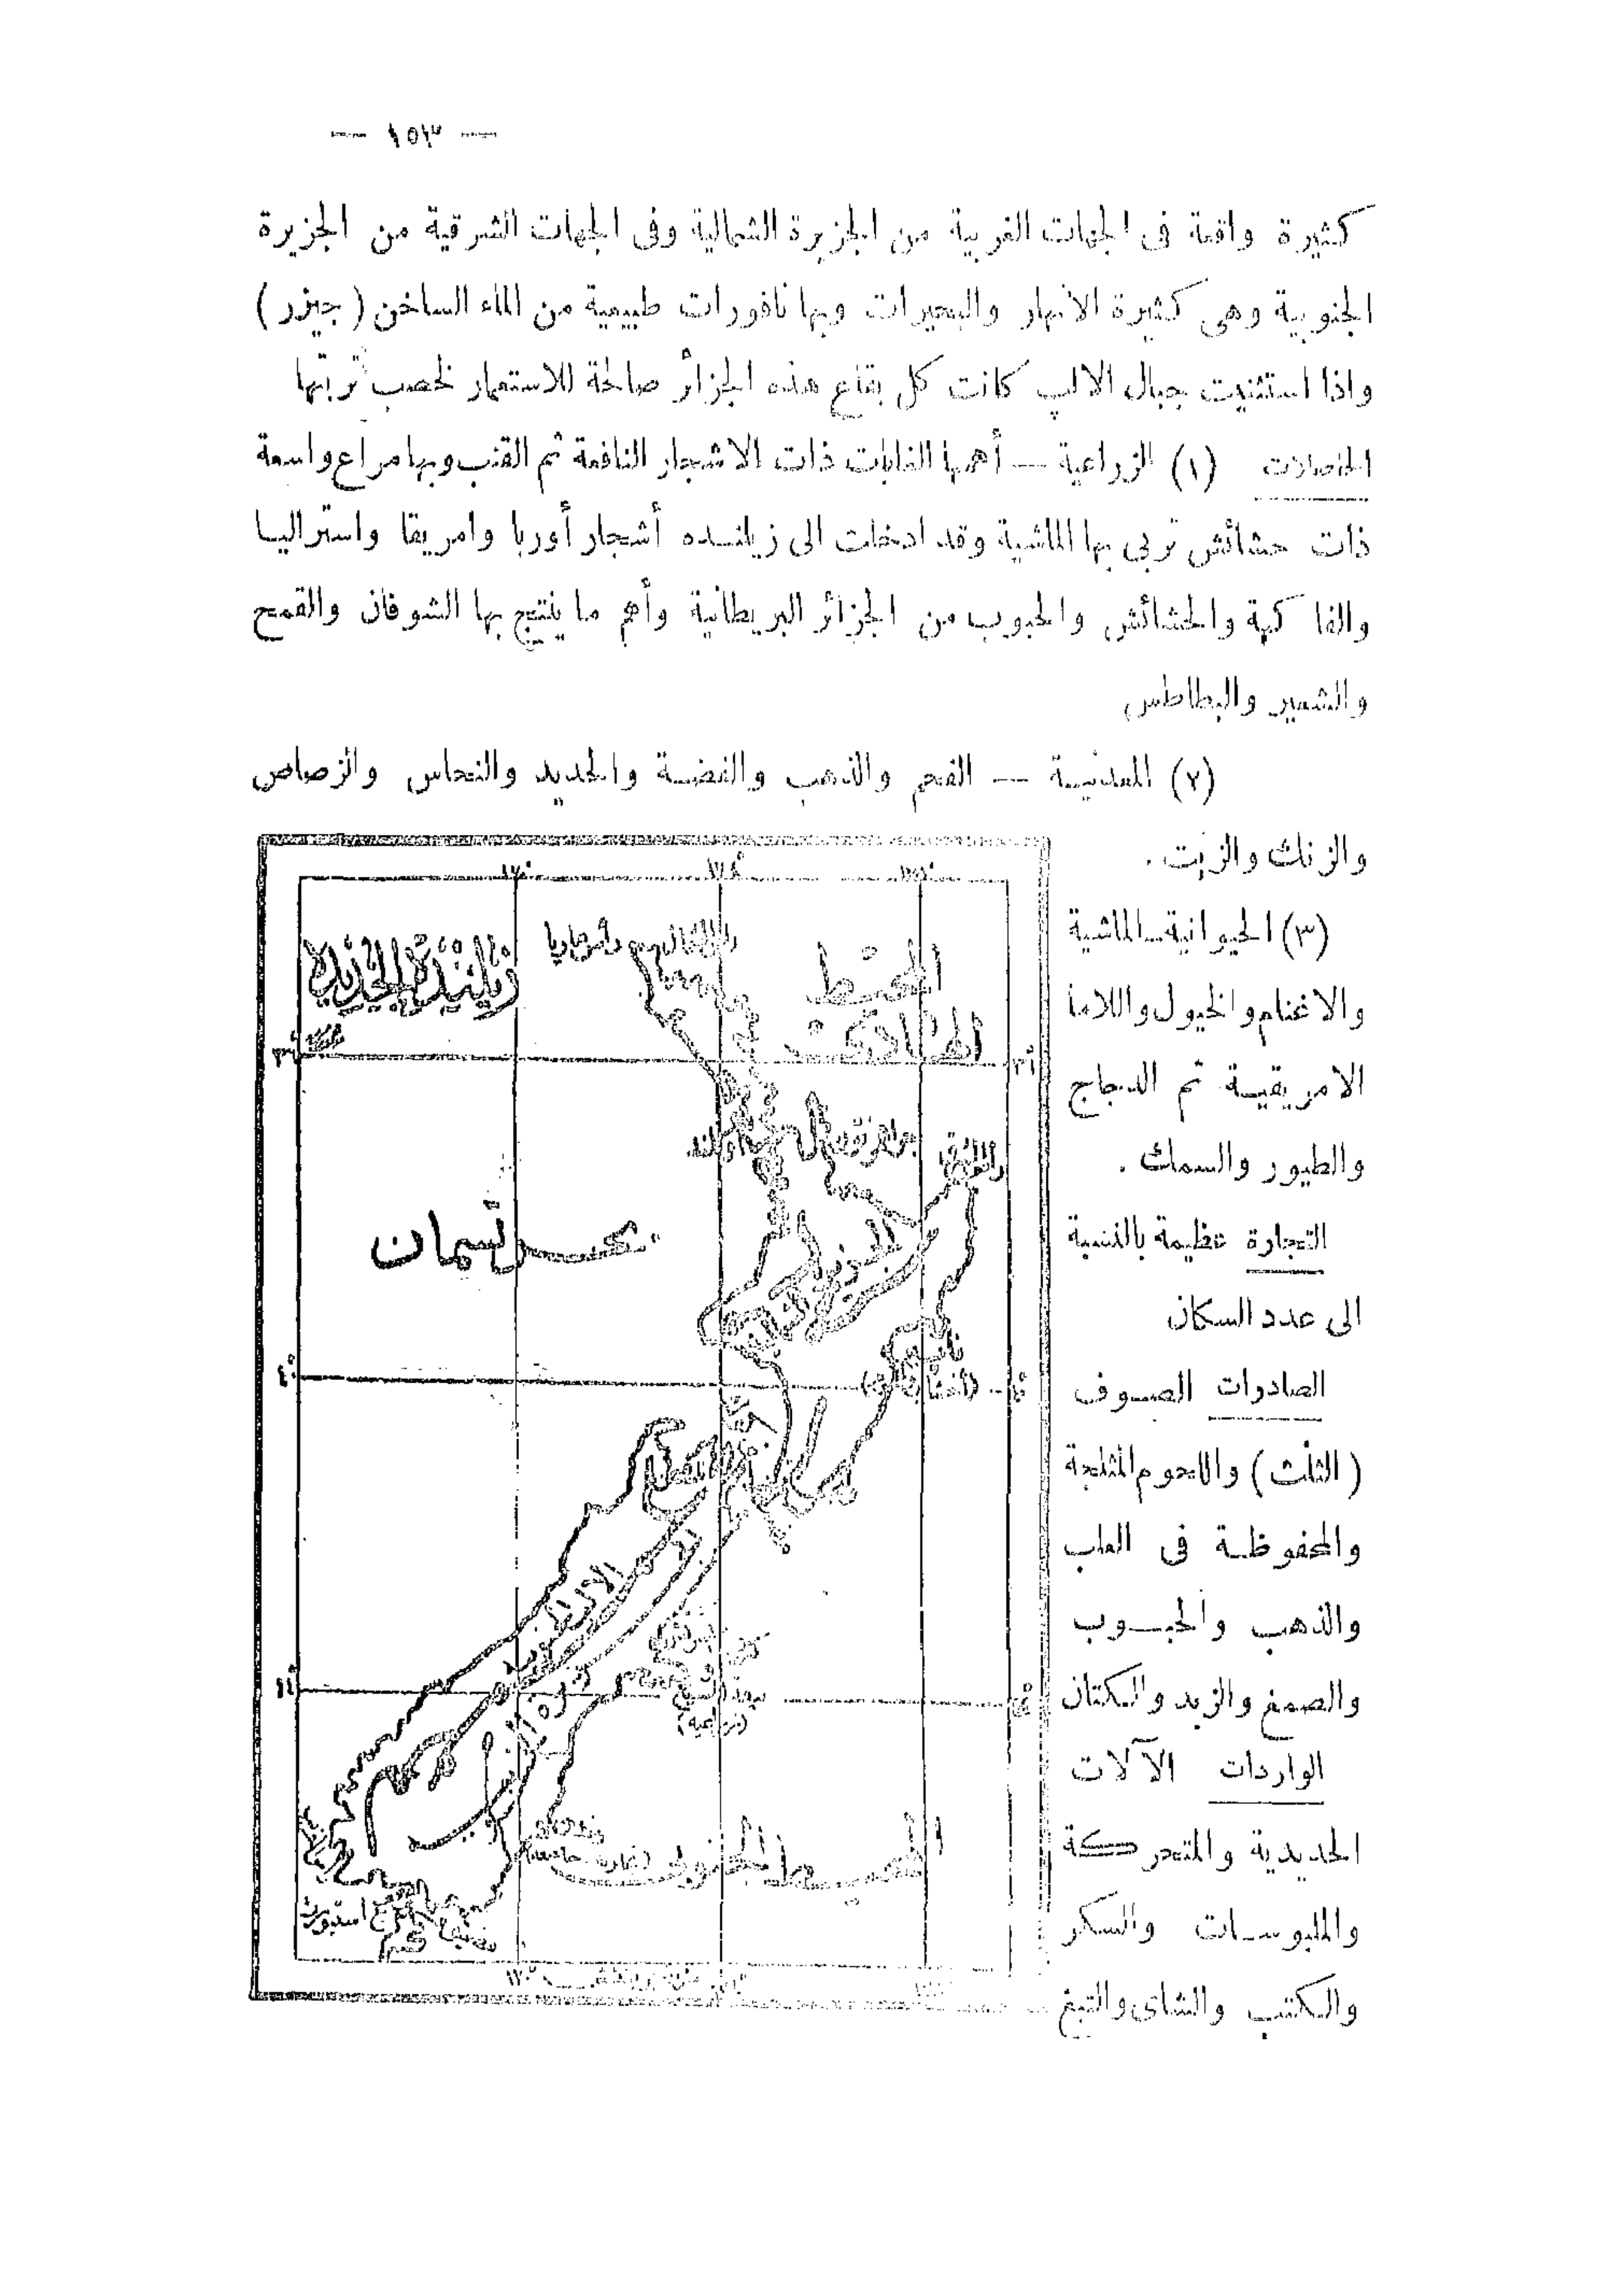 — ١٥٣ —
كثيرة واقعة فى الجهات الغربية من الجزيرة الشمالية وفى الجهات الشرقية من الجزيرة
الجنوبية وهى كثيرة الانهار والبحيرات وبها نافورات طبيعية من الماء الساخن ( جيزر )
واذا استثنيت جبال الالب كانت كل بقاع هذه الجزائر صالحة للاستعمار لخصب تربتها
الحاصلات (١) الزراعية — أهمها الغابات ذات الاشجار النافعة ثم القنب وبها مراع واسعة
ذات حشائش تربى بها الماشية وقد ادخلت الى زيلنـده أشجار أوربا وامريقا واستراليـا
والفا كهة والحشائش والحبوب من الجزائر البريطانية وأهم ما ينتج بها الشوفان والقمح
والشعير والبطاطس
(٢) المعدنيـة — الفحم والذهب والفضـة والحديد والنحاس والرصاص
والزنك والزيت .
(٣) الحيوانية ـ الماشية
والاغنام والخيول واللاما
الامريقيـة ثم الدجاج
والطيور والسمك .
التجارة عظيمة بالنسبة
الى عدد السكان
الصادرات الصـوف
( الثلث ) واللحوم المثلجة
والمحفوظـة فى العلب
والذهب والحبـوب
والصمغ والزبد والكتان
الواردات الآلات
الحديدية والمتحركة
والملبوسـات والسكر
والكتب والشاى والتبغ
زيلنده الجديدة
المحيط
الهادى
بحر تسمان
الجزيرة الشمالية
المحيط الجنوبى